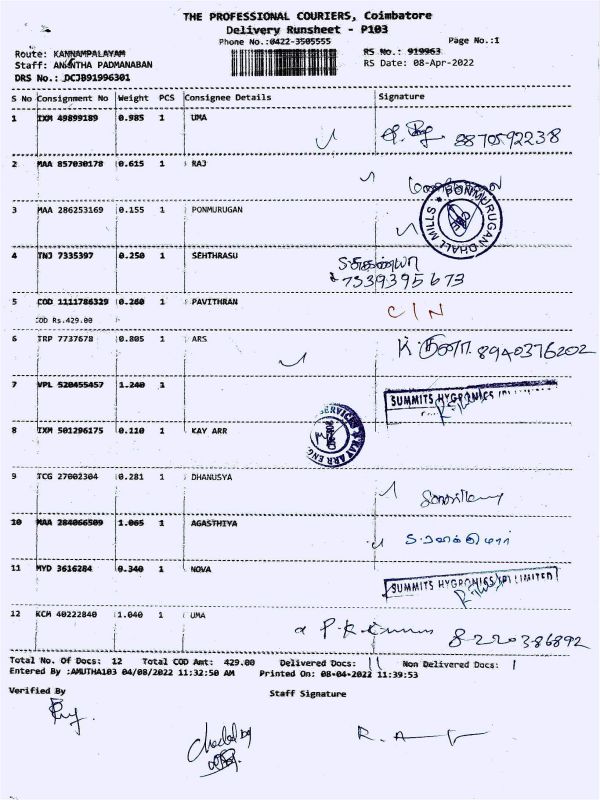 THE PROFESSIONAL COURIERS, Coimbatore
Delivery Runsheet - P103
Phone No.:0422-3505555
Page No.:1
Route: KANNAMPALAYAM
RS No.: 919963
Staff: ANANTHA PADMANABAN
RS Date: 08-Apr-2022
DRS No.: DCJB91996301
S No Consignment No Weight PCS Consignee Details Signature
1 IXM 49899189 0.985 1 UMA 8870592238
2 MAA 857030178 0.615 1 RAJ
3 MAA 286253169 0.155 1 PONMURUGAN PONMURUGAN DHALL MILLS
4 TNJ 7335397 0.250 1 SEHTHRASU
7539395673
5 COD 1111786329 0.260 1 PAVITHRAN C/N
COD Rs.429.00
6 TRP 7737678 0.805 1 ARS 8940376202
7 VPL 520455457 1.240 1 SUMMITS HYGRONICS
8 IXM 501296175 0.110 1 KAY ARR SERVICES KAY ARR ENG
9 TCG 27002304 0.281 1 DHANUSYA
10 MAA 284066509 1.065 1 AGASTHIYA
11 MYD 3616284 0.340 1 NOVA SUMMITS HYGRONICS (P) LIMITED
12 KCM 40222840 1.040 1 UMA 8220386892
Total No. Of Docs: 12 Total COD Amt: 429.00 Delivered Docs: 11 Non Delivered Docs: 1
Entered By :AMUTHA103 04/08/2022 11:32:50 AM Printed On: 08-04-2022 11:39:53
Verified By
Staff Signature